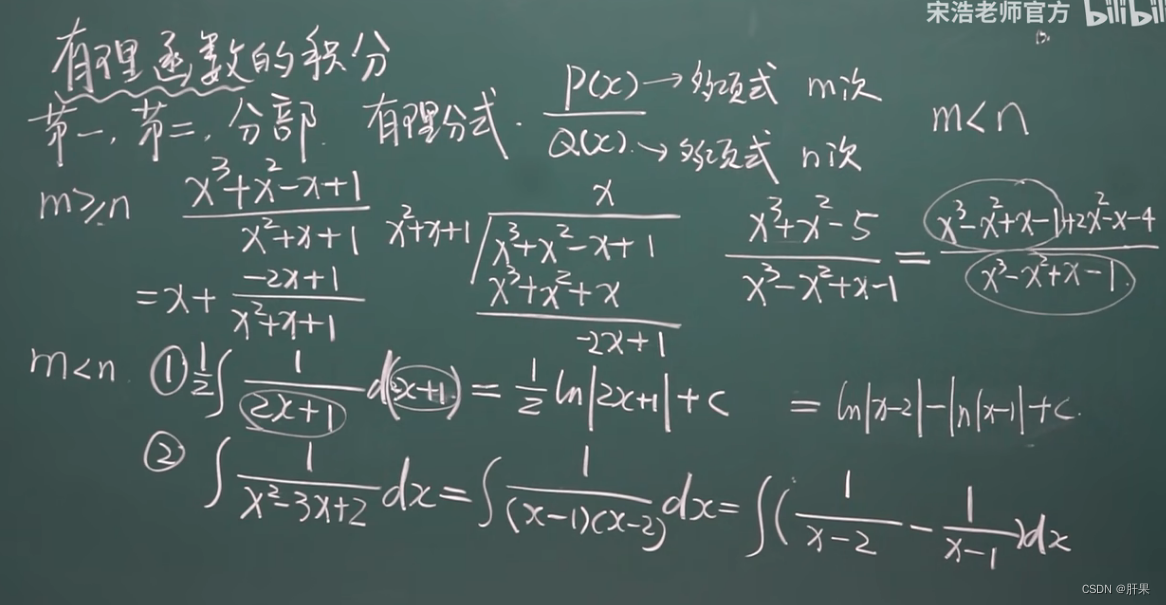 宋浩老师官方 bilibili
有理函数的积分
第一, 第二, 分部. 有理分式. P(x)/Q(x) P(x)→多项式 m次 Q(x)→多项式 n次 m<n
m≥n (x³+x²-x+1)/(x²+x+1)
=x+(-2x+1)/(x²+x+1)
x
x²+x+1 x³+x²-x+1
x³+x²+x
-2x+1
(x³+x²-5)/(x³-x²+x-1) = (x³-x²+x-1+2x²-x-4)/(x³-x²+x-1)
m<n. ① 1/2∫1/(2x+1) d(2x+1) = 1/2 ln|2x+1|+c
② ∫1/(x²-3x+2) dx = ∫1/((x-1)(x-2)) dx = ∫(1/(x-2) - 1/(x-1))dx
= ln|x-2|-ln|x-1|+c.
CSDN @肝果